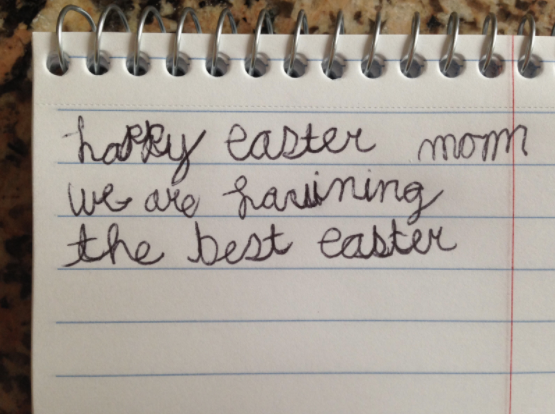 happy easter mom
we are hauining
the best easter